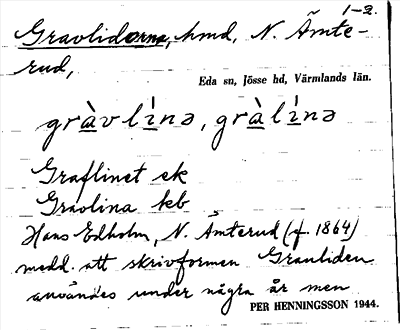 1-2.
Gravlidorna, hmd, N. Ämte-
rud,
Eda sn, Jösse hd, Värmlands län.
gràvlínə, gràlínə
Graflinet ek
Gravlina kb
Hans Edholm, N. Ämterud (f. 1864)
medd. att skrivformen Gravliden
användes under några år men
PER HENNINGSSON 1944.